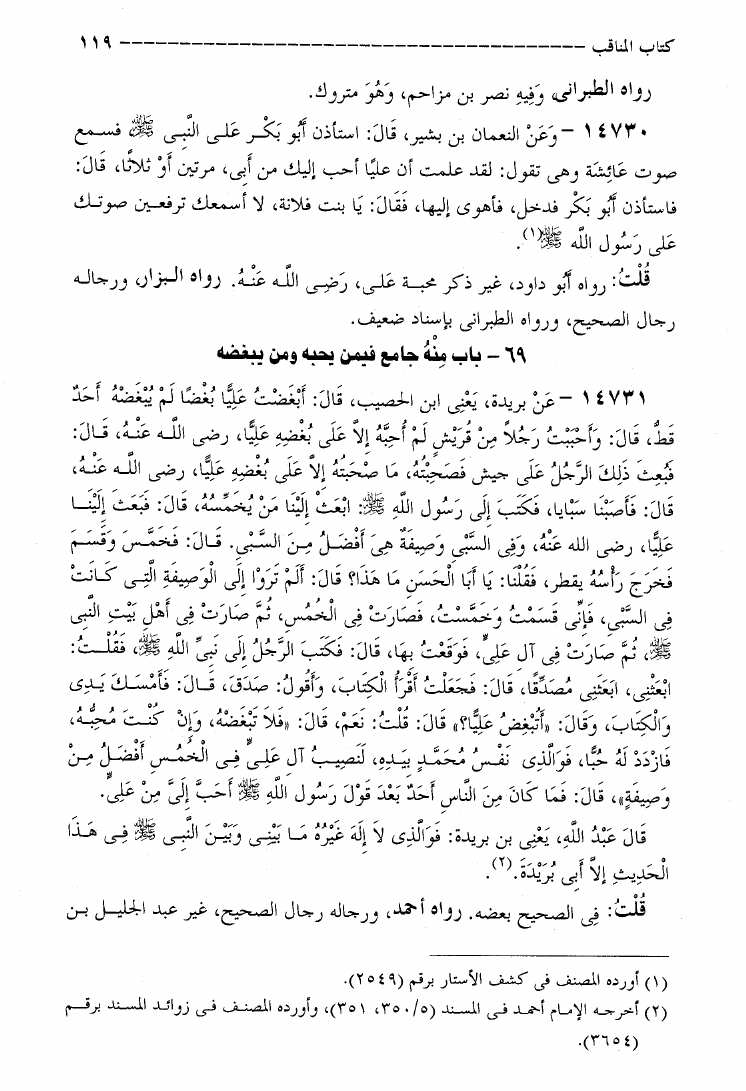 كتاب المناقب ------------------------------------------------ ١١٩
رواه الطبرانى، وَفِيهِ نصر بن مزاحم، وَهُوَ متروك.
١٤٧٣٠ – وَعَنْ النعمان بن بشير، قَالَ: استأذن أَبُو بَكْر عَلَى النَّبِى ﷺ فسمع
صوت عَائِشَة وهى تقول: لقد علمت أن عليًا أحب إليك من أَبِى، مرتين أَوْ ثلاثًا، قَالَ:
فاستأذن أَبُو بَكْر فدخل، فأهوى إليها، فَقَالَ: يَا بنت فلانة، لا أسمعك ترفعين صوتك
عَلى رَسُول الله ﷺ(١).
قُلْتُ: رواه أَبُو داود، غير ذكر محبة عَلى، رَضِى اللَّه عَنْهُ. رواه البزار، ورجاله
رجال الصحيح، ورواه الطبرانى بإسناد ضعيف.
٦٩ – باب مِنْهُ جامع فيمن يحبه ومن يبغضه
١٤٧٣١ – عَنْ بريدة، يَعْنِى ابن الحصيب، قَالَ: أَبْغَضْتُ عَلِيًّا بُغْضًا لَمْ يُبْغَضْهُ أَحَدٌ
قَطُّ، قَالَ: وَأَحْبَبْتُ رَجُلاً مِنْ قُرَيْشٍ لَمْ أُحِبَّهُ إِلاَّ عَلَى بُغْضِهِ عَلِيًّا، رضى الله عَنْهُ، قَالَ:
فَبُعِثَ ذَلِكَ الرَّجُلُ عَلَى جيش فَصَحِبْتُهُ، مَا صْحَبْتُهُ إِلاَّ عَلَى بُغْضِهِ عَلِيًّا، رضى الله عَنْهُ،
قَالَ: فَأَصَبْنَا سَبَايا، فَكَتَبَ إِلَى رَسُول اللَّهِ ﷺ: ابْعَثْ إِلَيْنَا مَنْ يُخَمِّسُهُ، قَالَ: فَبَعَثَ إِلَيْنَا
عَلِيًّا، رضى الله عَنْهُ، وَفِى السَّبْىِ وَصِيفَةٌ هِىَ أَفْضَلُ مِنَ السَّبْىِ. قَالَ: فَخَمَّسَ وَقَسَمَ
فَخَرَجَ رَأْسُهُ يقطر، فَقُلْنَا: يَا أَبَا الْحَسَنِ مَا هَذَا؟ قَالَ: أَلَمْ تَرَوْا إِلَى الْوَصِيفَةِ الَّتِى كَانَتْ
فِى السَّبْىِ، فَإِنِّى قَسَمْتُ وَخَمَّسْتُ، فَصَارَتْ فِى الْخُمُسِ، ثُمَّ صَارَتْ فِى أَهْلِ بَيْتِ النَّبِى
ﷺ، ثُمَّ صَارَتْ فِى آلِ عَلِىٍّ، فَوَقَعْتُ بها، قَالَ: فَكَتَبَ الرَّجُلُ إِلَى نَبِىِّ اللَّهِ ﷺ، فَقُلْتُ:
ابْعَثْنِى، ابَعَثَنِى مُصَدِّقًا، قَالَ: فَجَعَلْتُ أَقْرَأُ الْكِتَابَ، وَأَقُولُ: صَدَقَ، قَالَ: فَأَمْسَكَ يَدِى
وَالْكِتَابَ، وَقَالَ: «أَتُبْغِضُ عَلِيًّا؟» قَالَ: قُلْتُ: نَعَمْ، قَالَ: «فَلاَ تَبْغَضْهُ، وَإِنْ كُنْتَ مُحِبُّهُ،
فَازْدَدْ لَهُ حُبًّا، فَوَالَّذِى نَفْسُ مُحَمَّدٍ بِيَدِهِ، لَنَصِيبُ آلِ عَلِىٍّ فِى الْخُمُسِ أَفْضَلُ مِنْ
وَصِيفَةٍ»، قَالَ: فَمَا كَانَ مِنَ النَّاسِ أَحَدٌ بَعْدَ قَوْلَ رَسُولِ اللَّهِ ﷺ أَحَبَّ إِلَىَّ مِنْ عَلِىٍّ.
قَالَ عَبْدُ اللَّهِ، يَعْنِى بن بريدة: فَوَالَّذِى لاَ إِلَهَ غَيْرُهُ مَا بَيْنِى وَبَيْنَ النَّبِى ﷺ فِى هَذَا
الْحَدِيثِ إِلاَّ أَبِى بُرَيْدَةَ.(٢).
قُلْتُ: فِى الصحيح بعضه. رواه أحمد، ورجاله رجال الصحيح، غير عبد الجليل بن
(١) أورده المصنف فى كشف الأستار برقم (٢٥٤٩).
(٢) أخرجه الإمام أحمد فى المسند (٣٥٠/٥، ٣٥١)، وأورده المصنف فى زوائد المسند برقم
(٣٦٥٤).